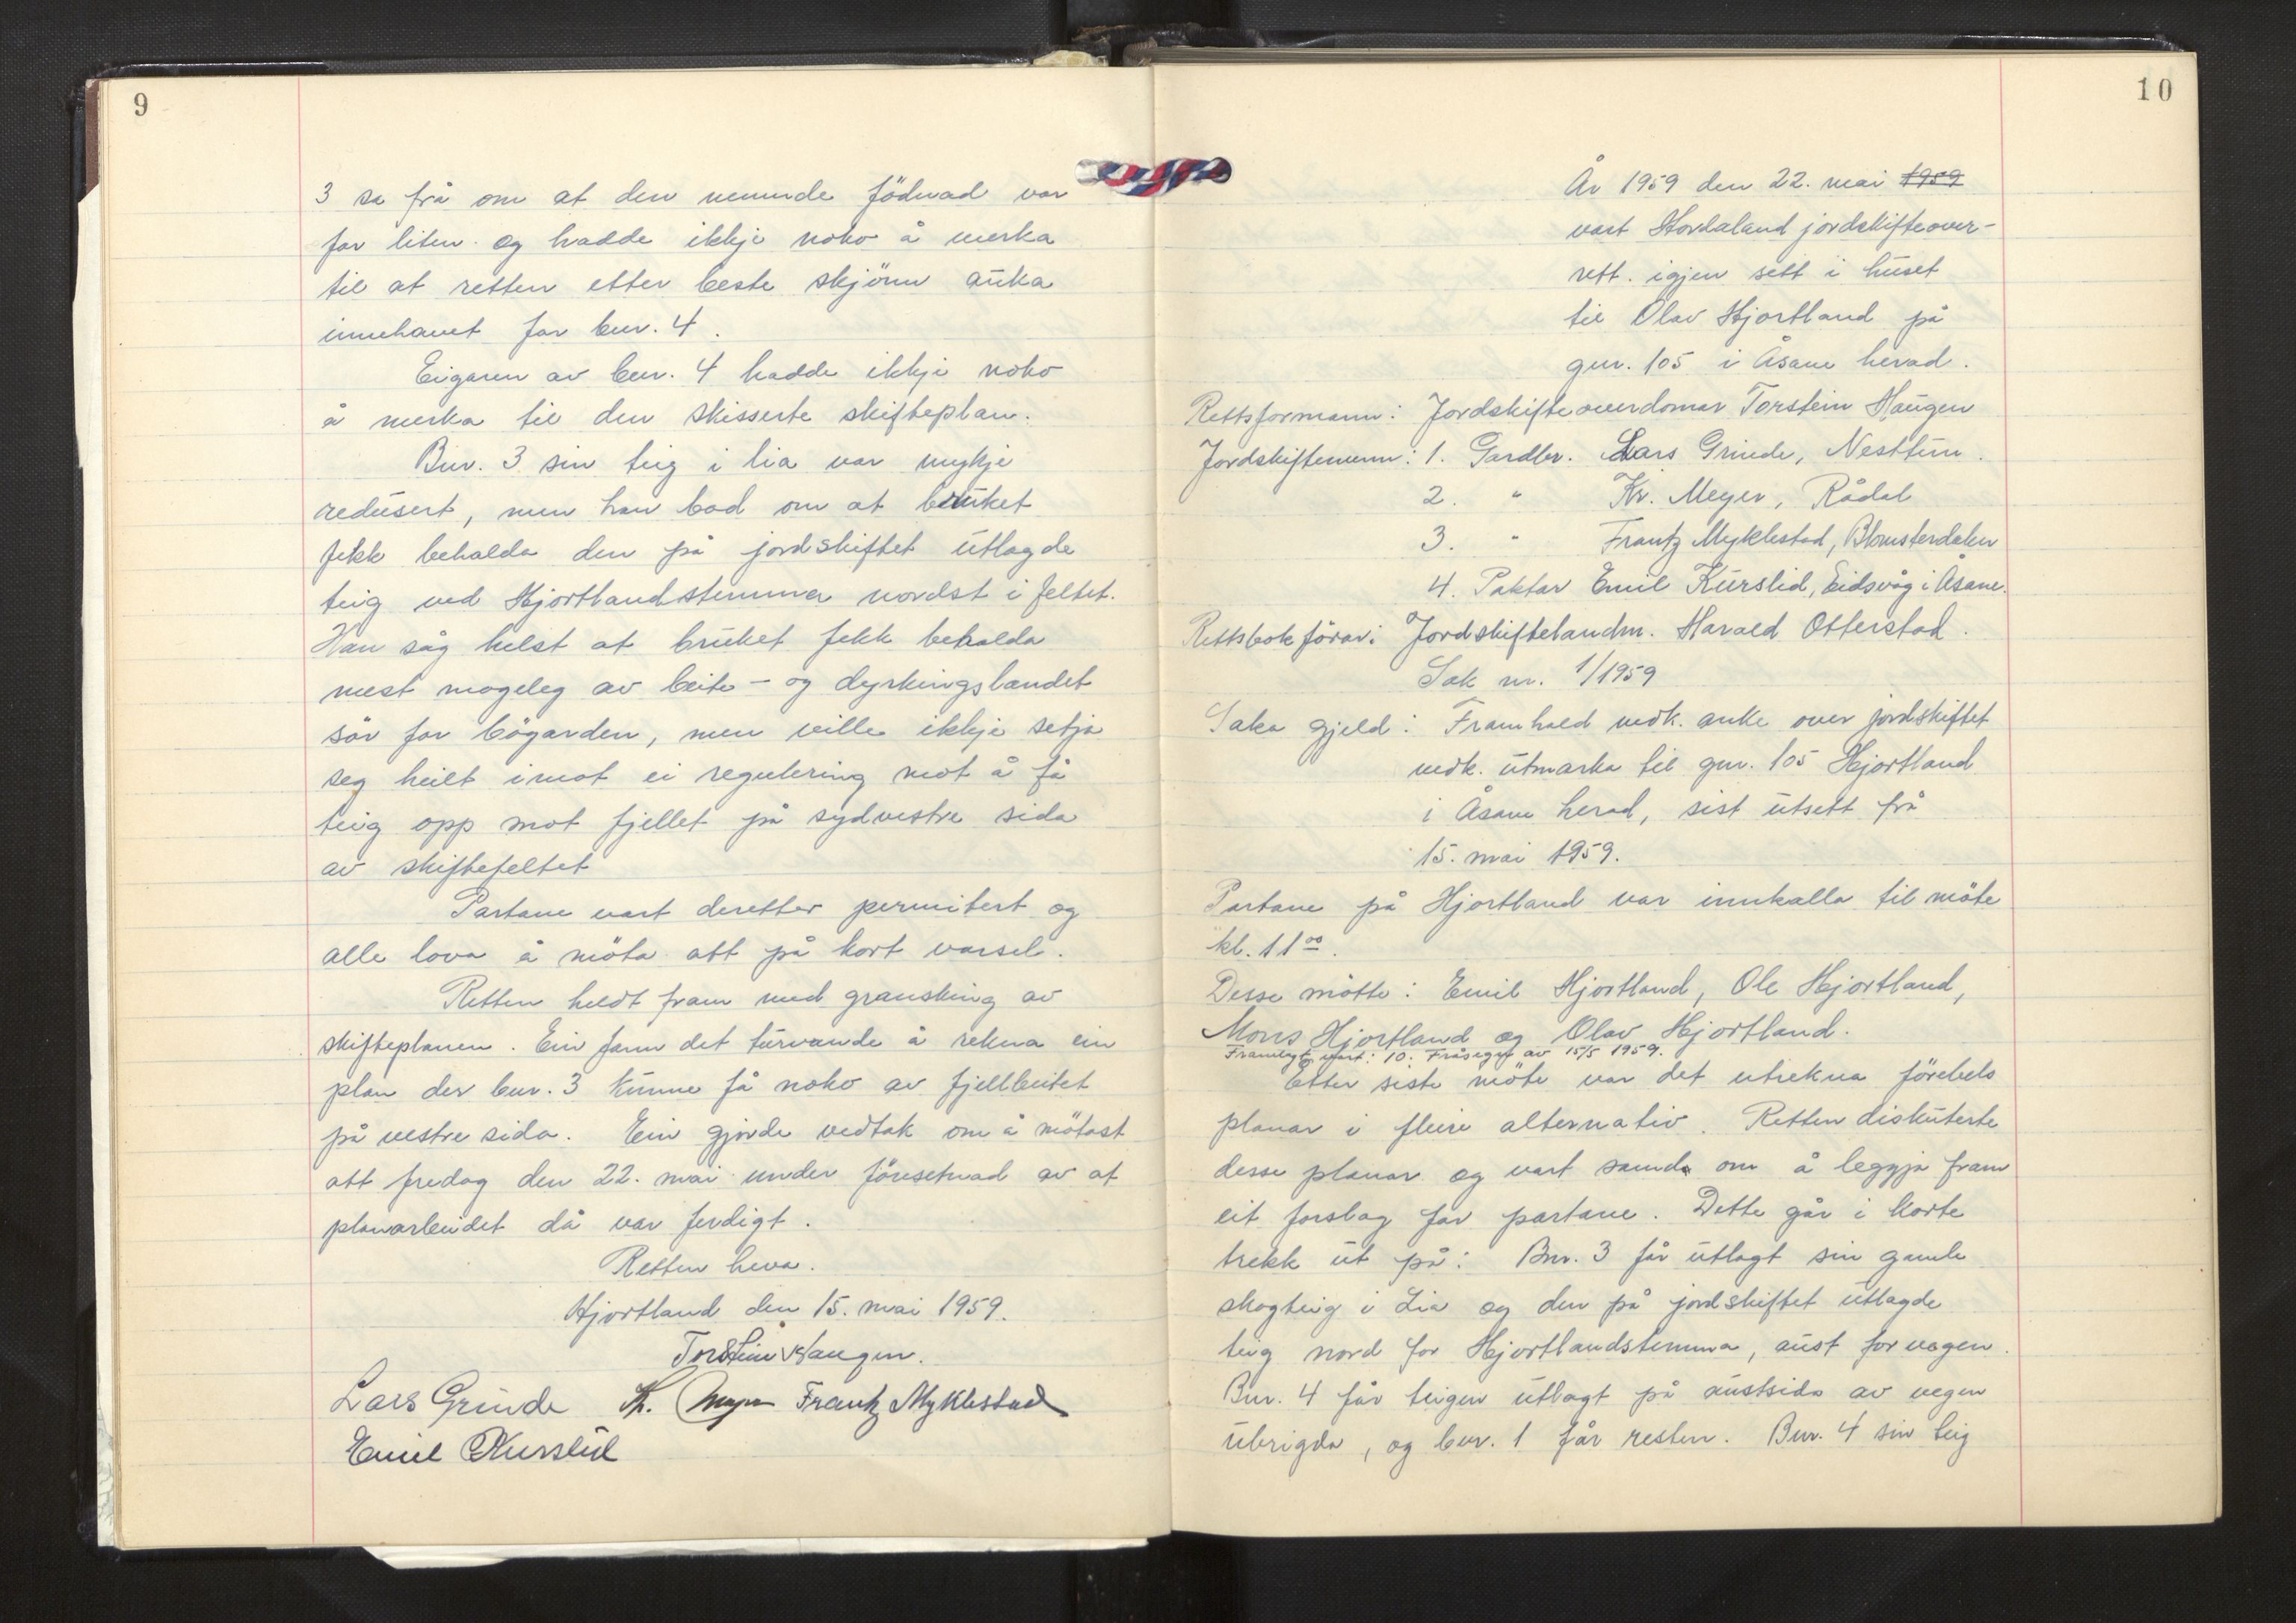 9
3 sa frå om at den nemnde födnad var
for liten og hadde ikkje noko å merka
til at retten etter beste skjönn auka
innehavet for bnr. 4.
Eigaren av bnr. 4 hadde ikkje noko
å merka til den skisserte skifteplan.
Bnr. 3 sin teig i lia var mykje
redusert, men han bad om at bruket
fekk behalda den på jordskiftet utlagde
teig ved Hjortlandstemma nordst i feltet.
Han såg helst at bruket fekk behalda
mest mogeleg av beite- og dyrkingslandet
sör for bögarden, men ville ikkje setja
seg heilt imot ei regulering mot å få
teig opp mot fjellet på sydvestre sida
av skiftefeltet
Partane vart deretter permitert og
alle lova å möta att på kort varsel.
Retten heldt fram med gransking av
skifteplanen. Ein fann det turvande å rekna ein
plan der bnr. 3 kunne få noko av fjellbeitet
på vestre sida. Ein gjorde vedtak om å mötast
att fredag den 22. mai under föresetnad av at
planarbeidet då var ferdigt.
Retten heva.
Hjortland den 15. mai 1959.
Torstein Haugen.
Lars Grinde Kr. Meyer Frantz Myklestad
Emil Kurslid
10
År 1959 den 22. mai 1959
vart Hordaland jordskifteover-
rett. igjen sett i huset
til Olav Hjortland på
gnr. 105 i Åsane herad.
Rettsformann: Jordskifteoverdomar Torstein Haugen
Jordskiftemenn: 1. Gardbr. Lars Grinde, Nesttun.
2. " Kr. Meyer, Rådal
3. " Frantz Myklestad, Blomsterdalen
4. Paktar Emil Kurslid, Eidsvåg i Åsane.
Rettsbokförar: Jordskiftelandm. Harald Otterstad.
Sak nr. 1/1959
Saka gjeld: Framhald vedk. anke over jordskiftet
vedk. utmarka til gnr. 105 Hjortland
i Åsane herad, sist utsett frå
15. mai 1959.
Partane på Hjortland var innkalla til möte
kl. 11⁰⁰.
Desse mötte: Emil Hjortland, Ole Hjortland,
Mons Hjortland og Olav Hjortland.
Framlagt vart: 10. Fråsegn av 15/5 1959.
Etter siste möte var det utrekna förebels
planar i fleire alternativ. Retten diskuterte
desse planar og vart samde om å leggja fram
eit forslag for partane. Dette går i korte
trekk ut på: Bnr. 3 får utlagt sin gamle
skogteig i Lia og den på jordskiftet utlagde
teig nord for Hjortlandstemma, aust for vegen.
Bnr. 4 får teigen utlagt på austsida av vegen
ubrigda, og bnr. 1 får resten. Bnr. 4 sin teig